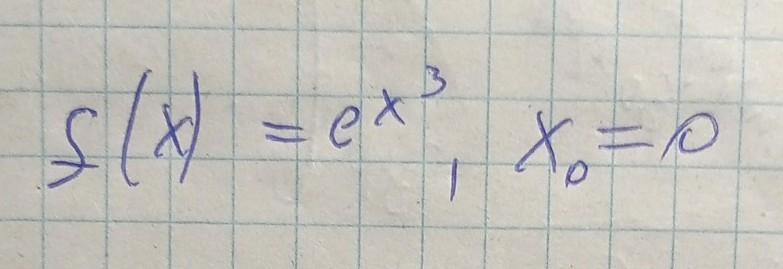 f(x) = e^{x^3}, x_0 = 0